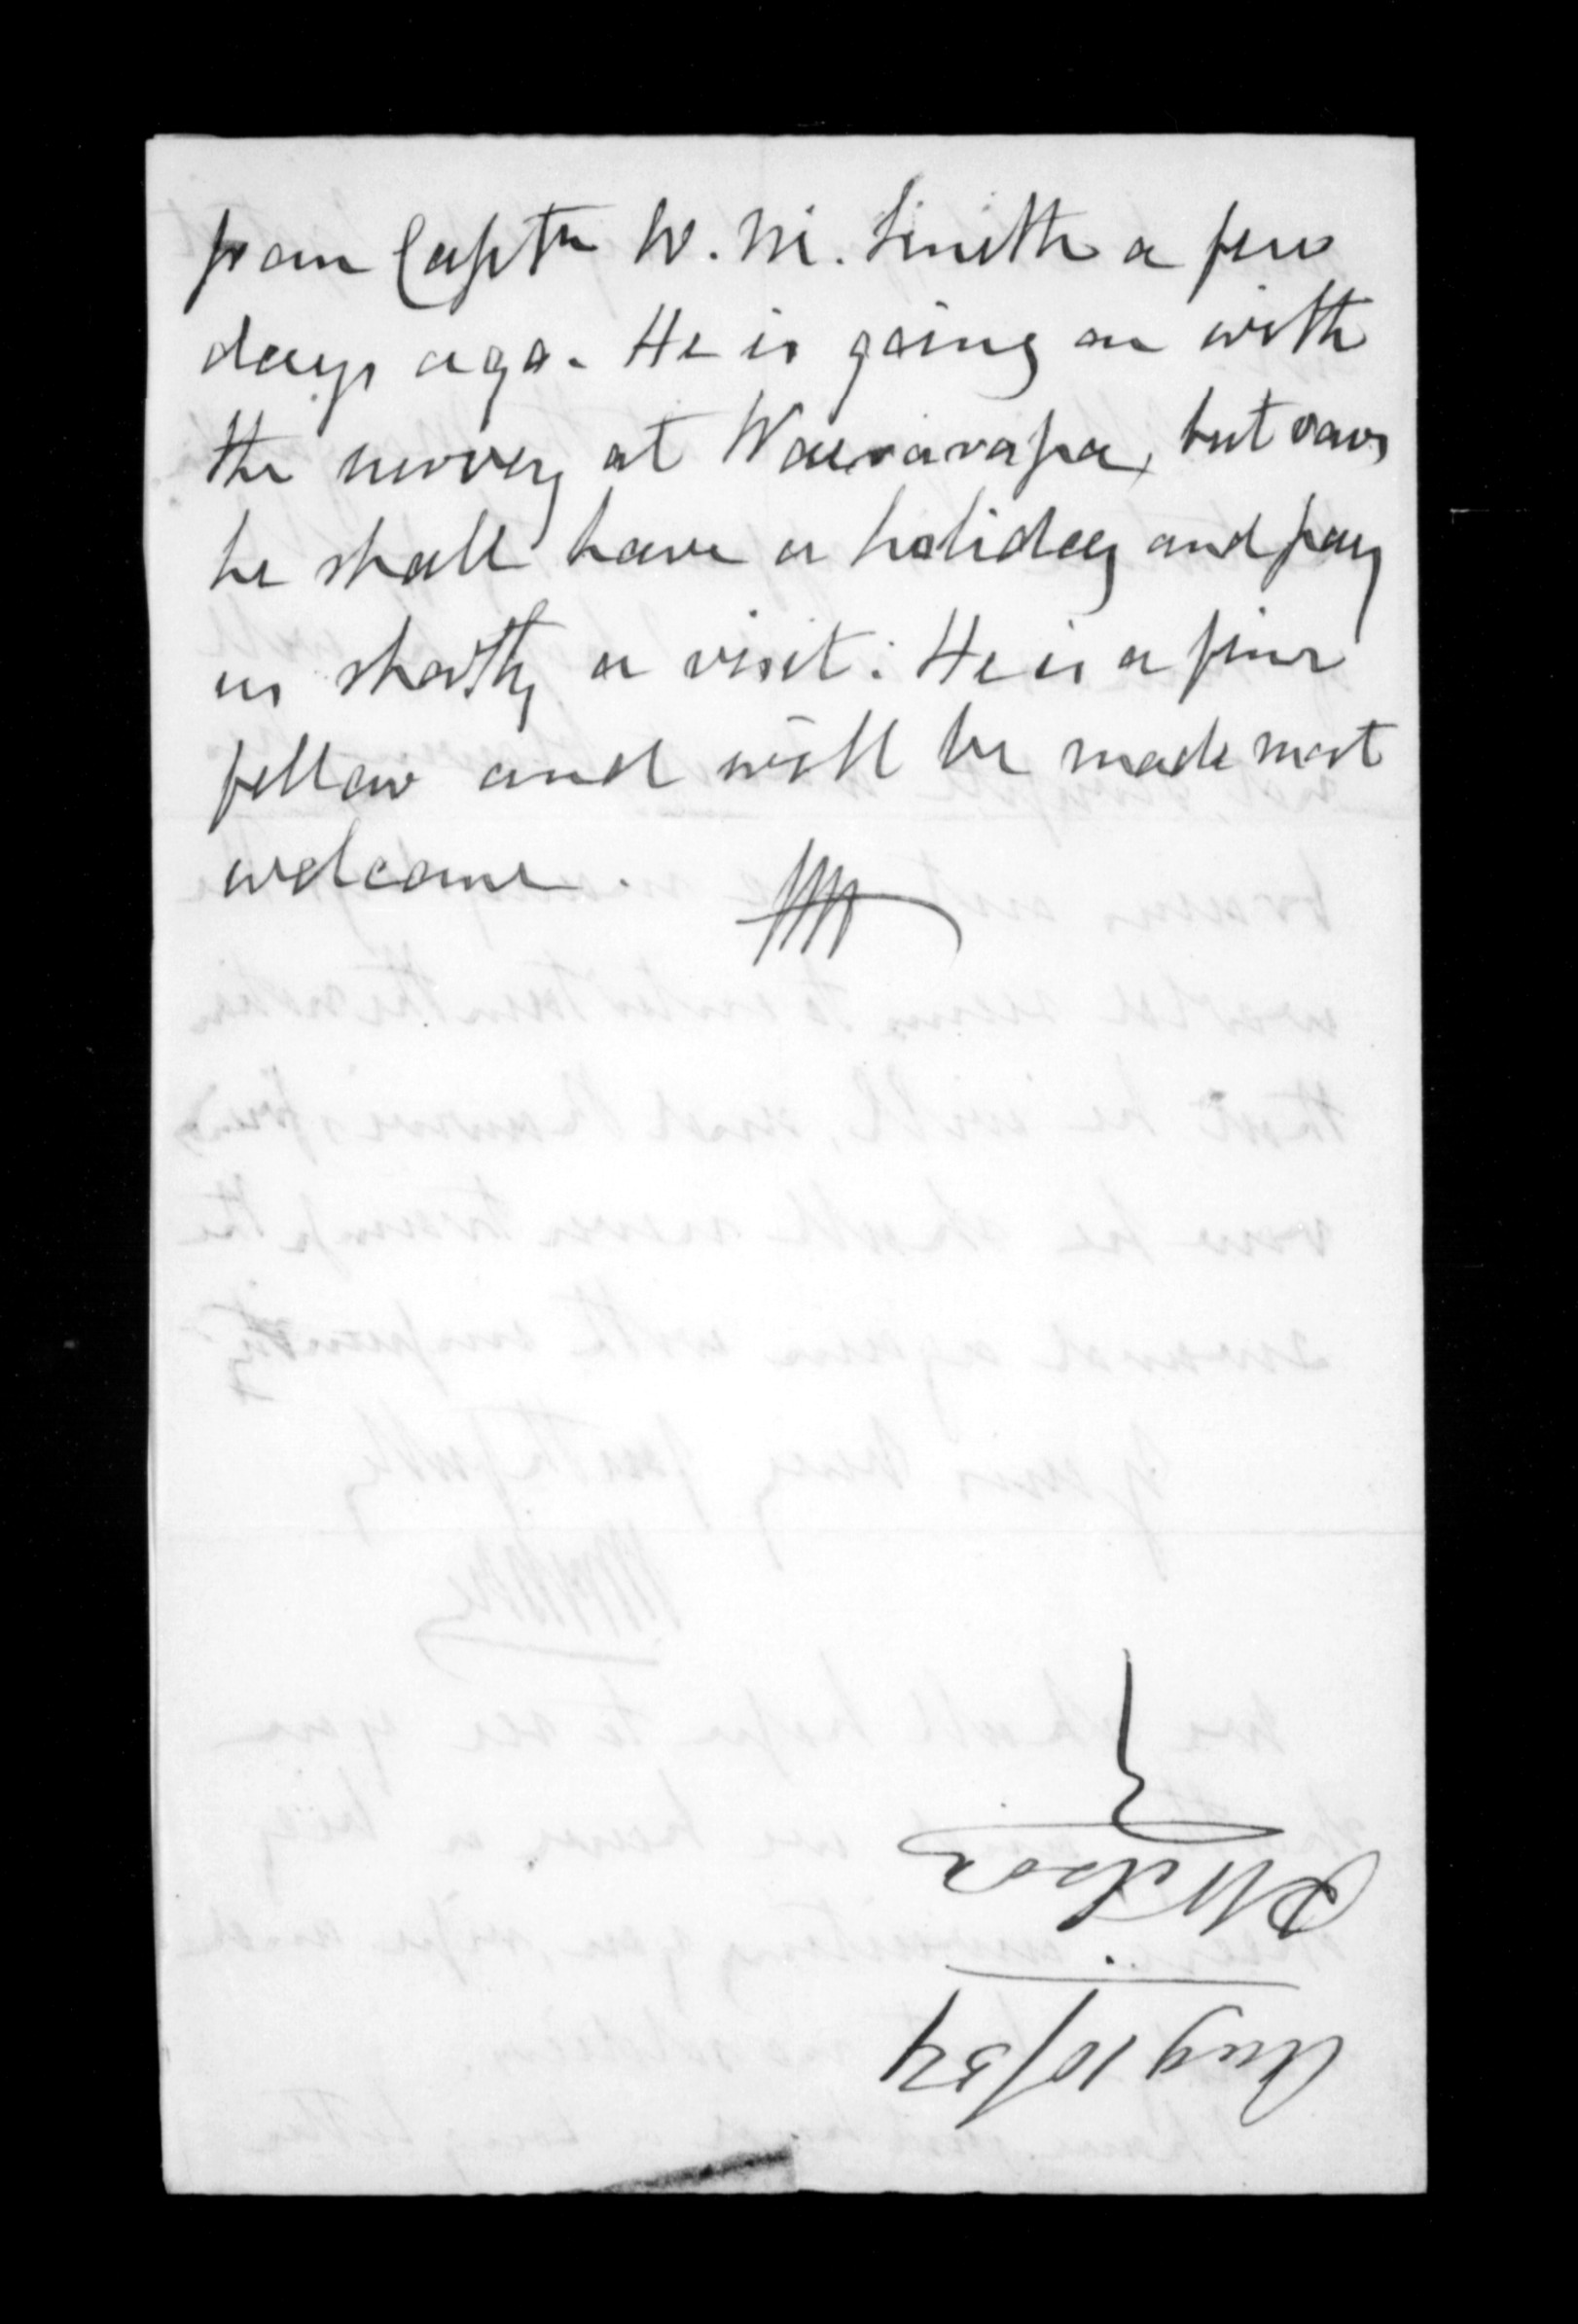 from Captn W. M. Smith a few
days ago. He is going on with
the survey at Wairarapa, but says
he shall have a holiday and pay
us shortly a visit: He is a fine
fellow and will be made most
welcome.
P Wilson
Aug 10/54